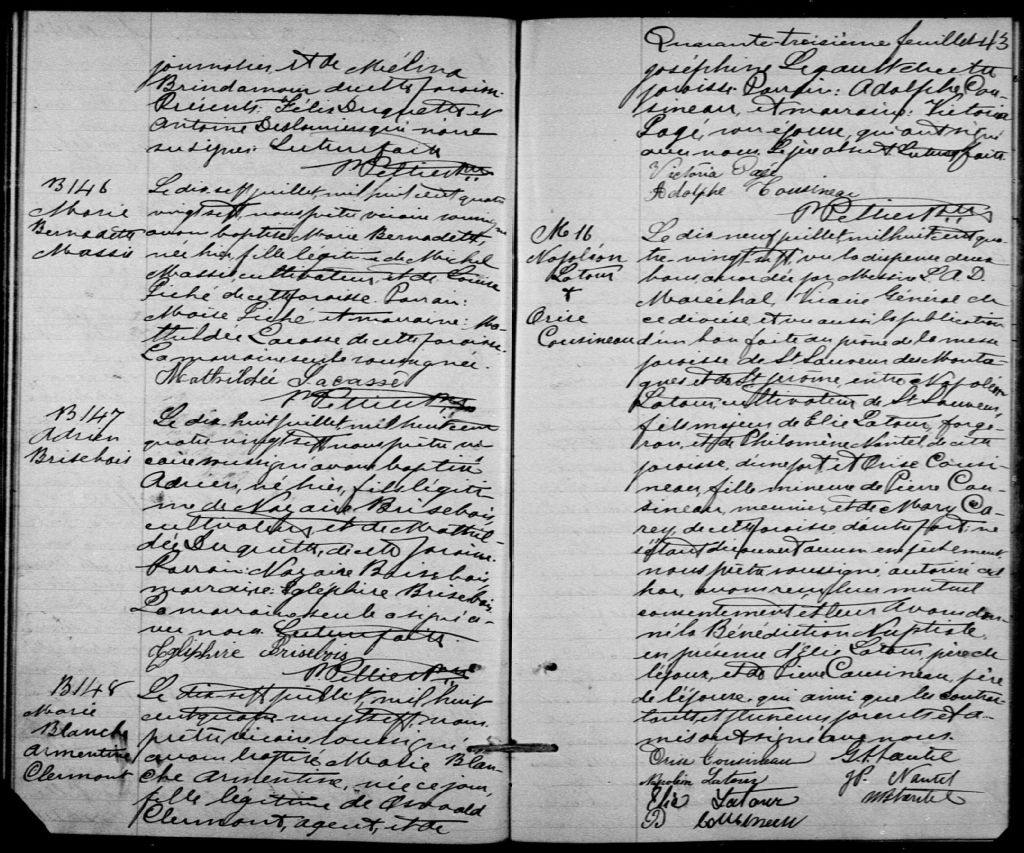 journalier et de Mélina
Brindamour de cette paroisse.
Présents: Félix Duquette et
Antoine Deslauriers qui n'ont
su signer. Lecture faite
Pelletier Ptre
B 146
Marie
Bernadette
Massie
Le dix sept juillet, mil huit cent quatre
vingt sept, nous prêtre vicaire soussigné
avons baptisé Marie Bernadette,
née hier, fille légitime de Michel
Massie, cultivateur, et de Louise
Piché de cette paroisse. Parrain:
Moise Piché et marraine: Ma-
thildée Lacasse de cette paroisse.
La marraine seule a signé.
Mathildée Lacasse
Pelletier Ptre
B 147
Adrien
Brisebois
Le dix huit juillet mil huit cent
quatre vingt sept nous prêtre vi-
caire soussigné avons baptisé
Adrien, né hier, fils légiti-
me de Nazaire Brisebois,
cultivateur, et de Mathil-
dée Duquette, de cette paroisse.
Parrain: Nazaire Brisebois
marraine: Egléphire Brisebois
La marraine seule a signé a-
vec nous. Lecture faite.
Egliphire Brisebois
Pelletier Ptre
B 148
Marie
Blanche
Armentine
Clermont
Le dix sept juillet, mil huit
cent quatre vingt sept, nous
prêtre vicaire soussigné,
avons baptisé Marie Blan-
che Armentine, née ce jour,
fille légitime de Oswald
Clermont, agent, et de
Quarante troisième feuillet 43
Joséphine Legault de cette
paroisse. Parrain: Adolphe Cou-
sineau, et marraine: Victoria
Pagé, son épouse, qui ont signé
avec nous. Le père absent. Lecture faite.
Victoria Pagé
Adolphe Cousineau
Pelletier Ptre
M 16
Napoléon
Latour
+
Orise
Cousineau
Le dix neuf juillet mil huit cent qua-
tre-vingt sept, vu la dispense de deux
bans accordée par Messire L. A. D.
Maréchal, Vicaire Général de
ce diocèse, et vu aussi la publication
d'un ban faite au prône de la messe
paroisse de St Sauveur des Monta-
gnes et de St Jérôme, entre Napoléon
Latour, cultivateur de St Sauveur,
fils majeur de Elie Latour, forge-
ron, et de Philomène Nantel de cette
paroisse, d'une part et Orise Cousi-
neau, fille mineure de Pierre Cou-
sineau, meunier, et de Mary Ca-
rey, de cette paroisse d'autre part; ne
s'étant découvert aucun empêchement
nous prêtre soussigné, autorisé ad
hoc, avons reçu leur mutuel
consentement et leur avons don-
né la Bénédiction Nuptiale
en présence d'Elie Latour, père de
l'époux, et de Pierre Cousineau, père
de l'épouse, qui ainsi que les contrac-
tants et plusieurs parents et a-
mis ont signé avec nous
Orise Cousineau G. Nantel
Napoléon Latour J P. Nantel
Elie Latour W Nantel
P Cousineau